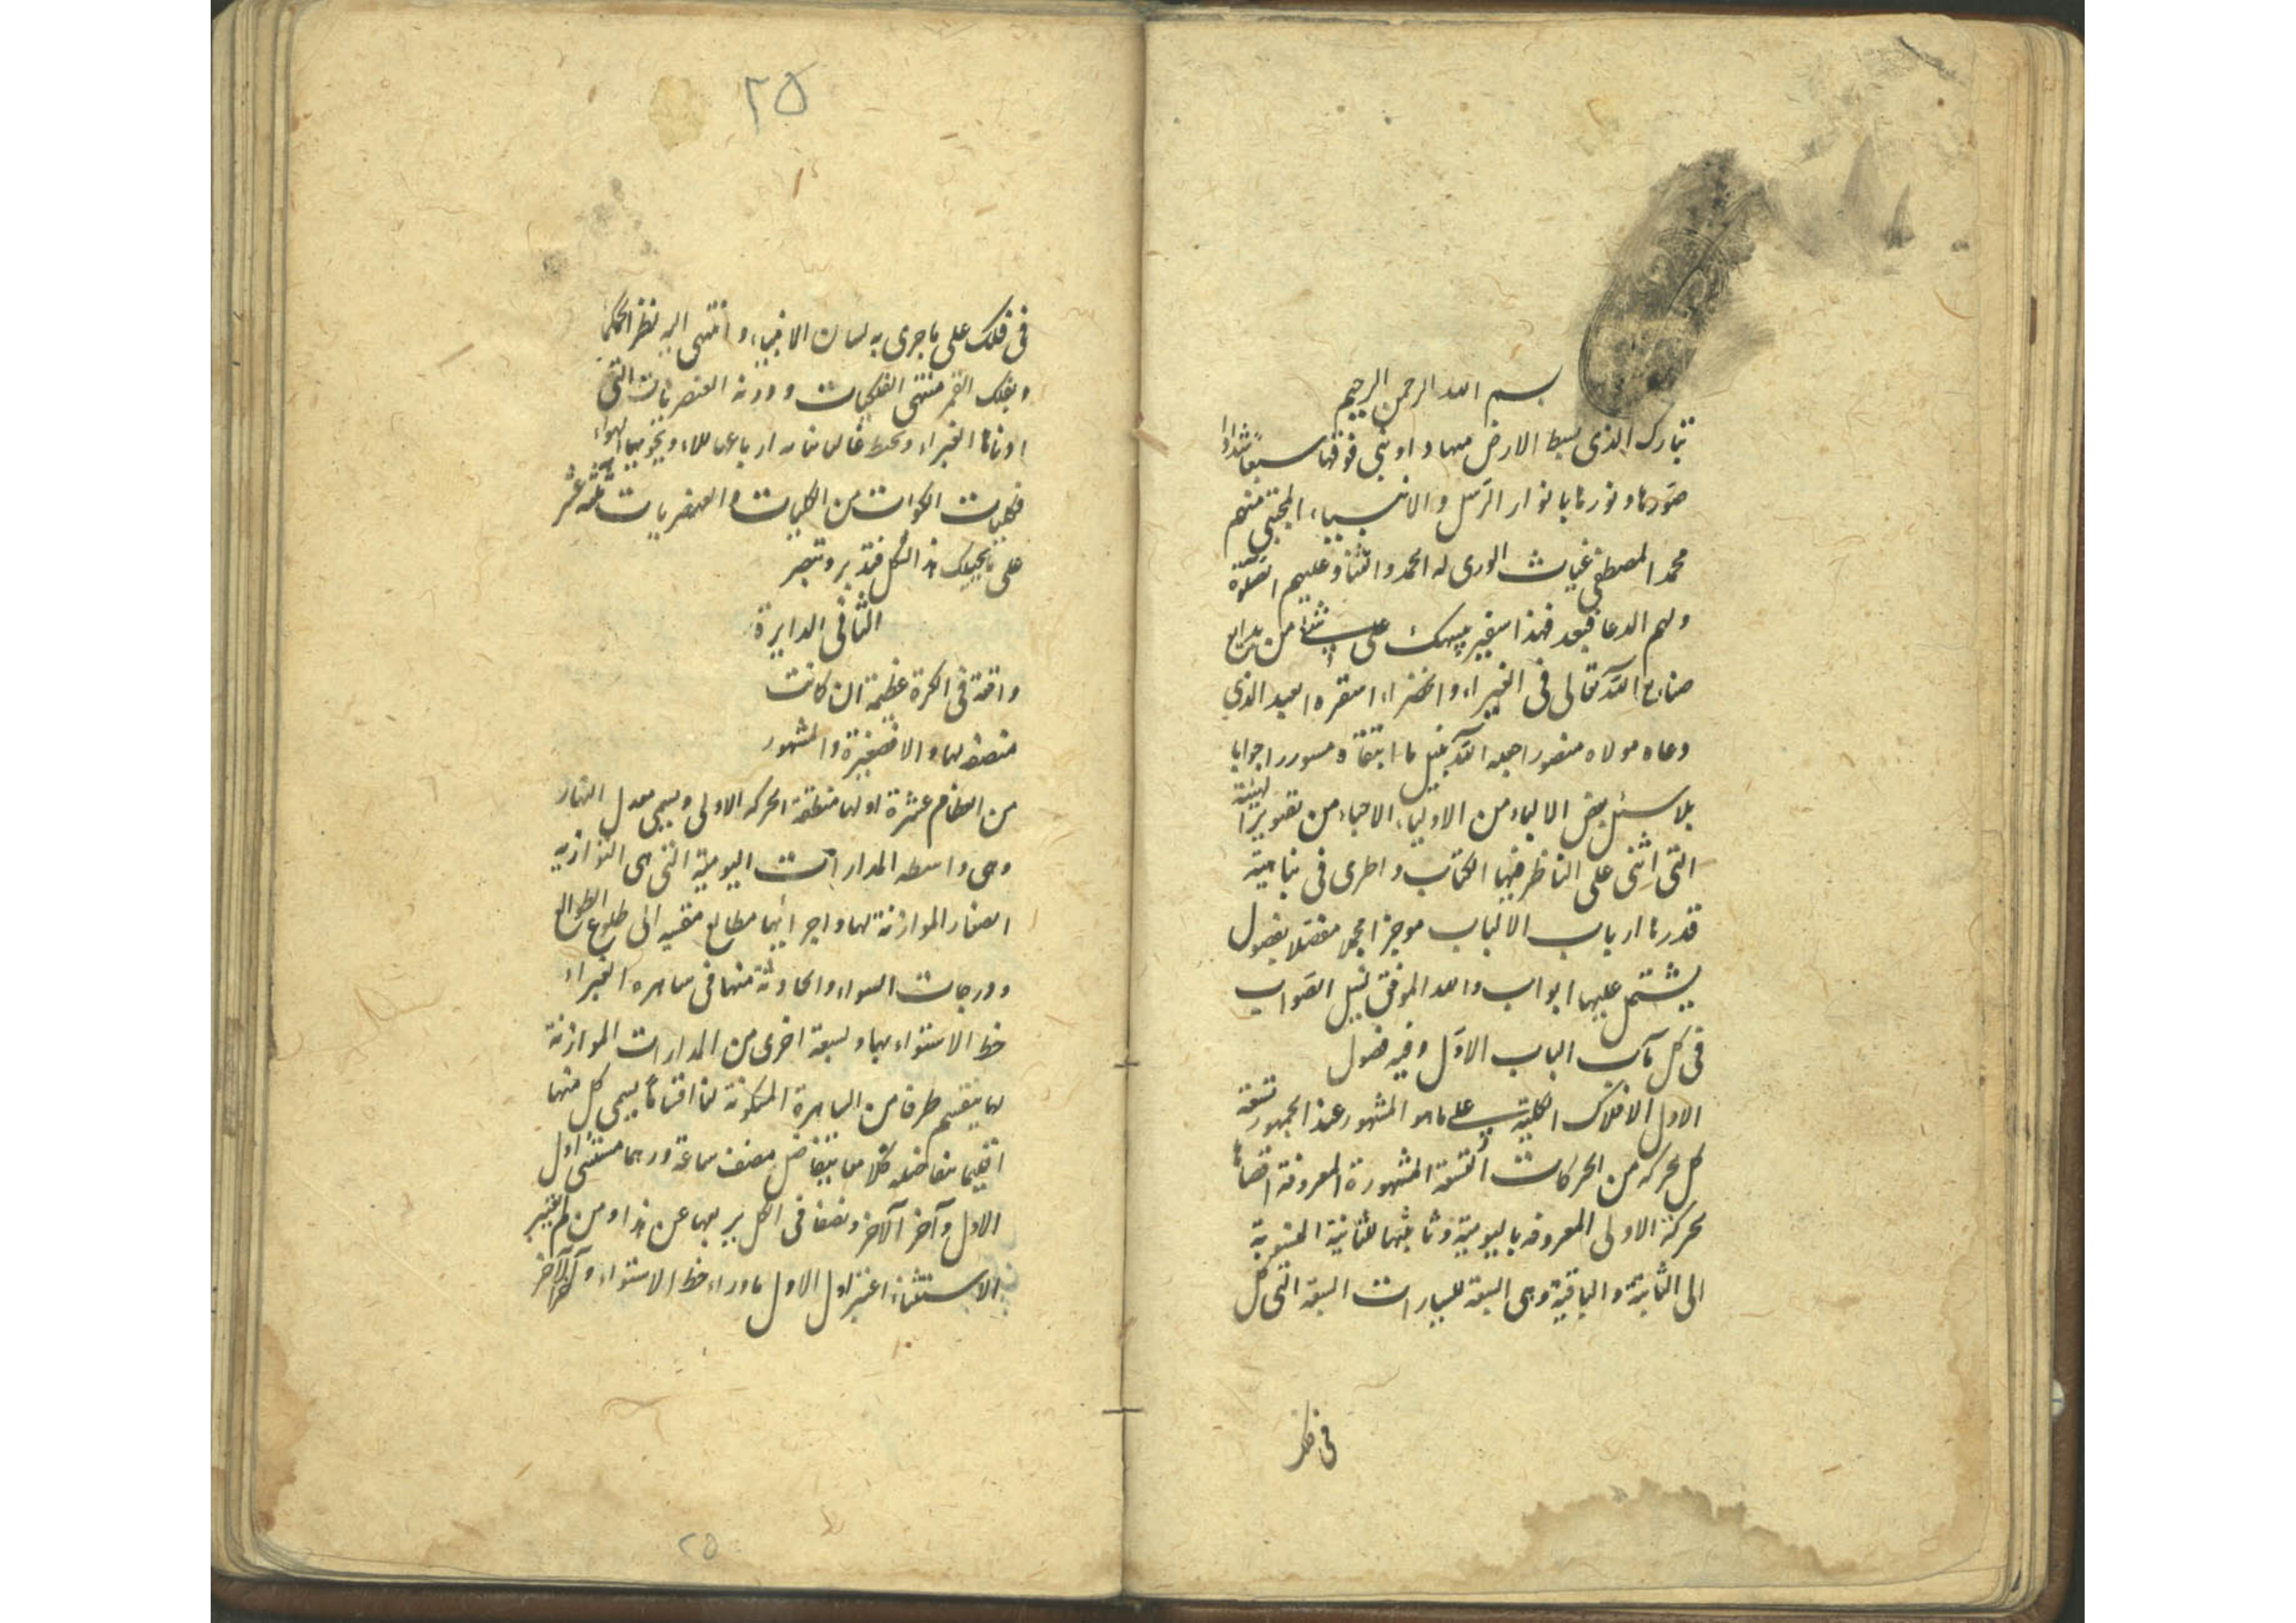 بسم الله الرحمن الرحيم
تبارك الذى بسط الارض مهادا وبنى فوقها سبعا شدادا
صورها ونورها بانوار الرسل والانبياء المجتبى منهم
محمد المصطفى غياث الورى له الحمد والثنا وعليهم الصلوة
ولهم الدعا فبعد فهذا سفير يهديك على شىء من بدايع
صنايع الله تعالى فى الغبراء والخضراء العبد الذى
دعاه مولاه منصورا جعله الله بنيل ما ابتغاه مسرورا جوابا
بلا سئل بعض الالباء من الاولياء الاحباء من تصوير الهيئة
التى اثنى على الناظر فيها الكتاب واطرى فى نباهة
قدرها ارباب الالباب موجزا مجملا مفصلا بفصول
يشتمل عليها ابواب والله الموفق لنيل الصواب
فى كل باب الباب الاول وفيه فصول
الاول الافلاك الكلية على ما هو المشهور عند الجمهور تسعة
كل حركة من الحركات التسعة المشهورة المعروفة
لحركة الاولى المعروفه باليومية وثانيتها للثانية المنسوبة
الى الثابتة والباقية وهى السبعة للسيارات السبعة التى كل
فى فلك
٢٥
فى فلك على ما جرى به لسان الانبياء وانتهى اليه نظر الحكماء
وبفلك القمر منتهى الفلكيات ودونه العنصريات التى
ادناها الغبراء ويحيط الماء ويحويهما الهواء
فكليات الكرات من الفلكيات والعنصريات ثلثة عشر
على ما يحييك هذا الشكل فتدبر وتبصر
الثانى الدايرة
واقعة فى الكرة عظيمة ان كانت
منصفه لها والا فصغيرة والمشهور
من العظام عشرة اولها منطقة الحركه الاولى ويسمى معدل النهار
وهى واسطه المدارات اليومية التى هى التوازيه
الصغار الموازنة لها واجزائها مطالع مقسه الى طلوع الطوالع
ودرجات السواء والحادثة منها فى ساهره الغبراء
خط الاستواء بها وبسبعة اخرى من المدارات الموازنة
لها ينقسم طرف من الساهرة المسكونة لنا اقساما يسمى كل منها
اقليما يتفاضل نصف ساعة ورسما مستثنى اول
الاول وآخر الآخر ونصفا فى الكل بربعها عن هذا ومن لم يعتبر
الاستثناء اعتبر اول الاول ما وراء خط الاستواء وآخر الآخر
٢٥